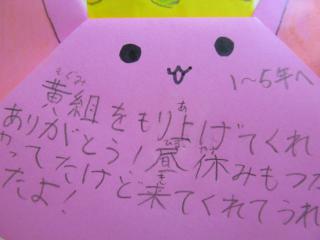 1〜5年へ
黄組をもり上げてくれ
ありがとう!昼休みもつか
やってたけど来てくれてうれ
たよ!